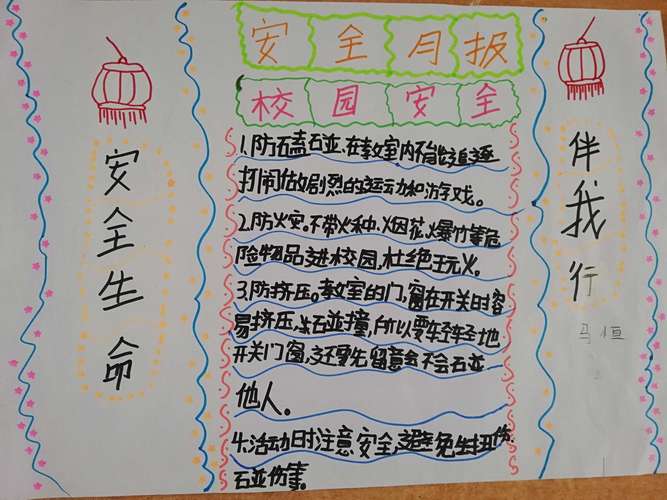 安全月报
校园安全
安全生命
伴我行
马恒
1.防磕碰.在教室内不能追逐
打闹做剧烈的运动和游戏。
2.防火灾。不带火种、烟花、爆竹等危
险物品进校园,杜绝玩火。
3.防挤压。教室的门,窗在开关时容
易挤压、碰撞,所以要轻轻地
开关门窗,还要先留意会不会碰
他人。
4.活动时注意安全,避免生扭伤.
碰伤等。